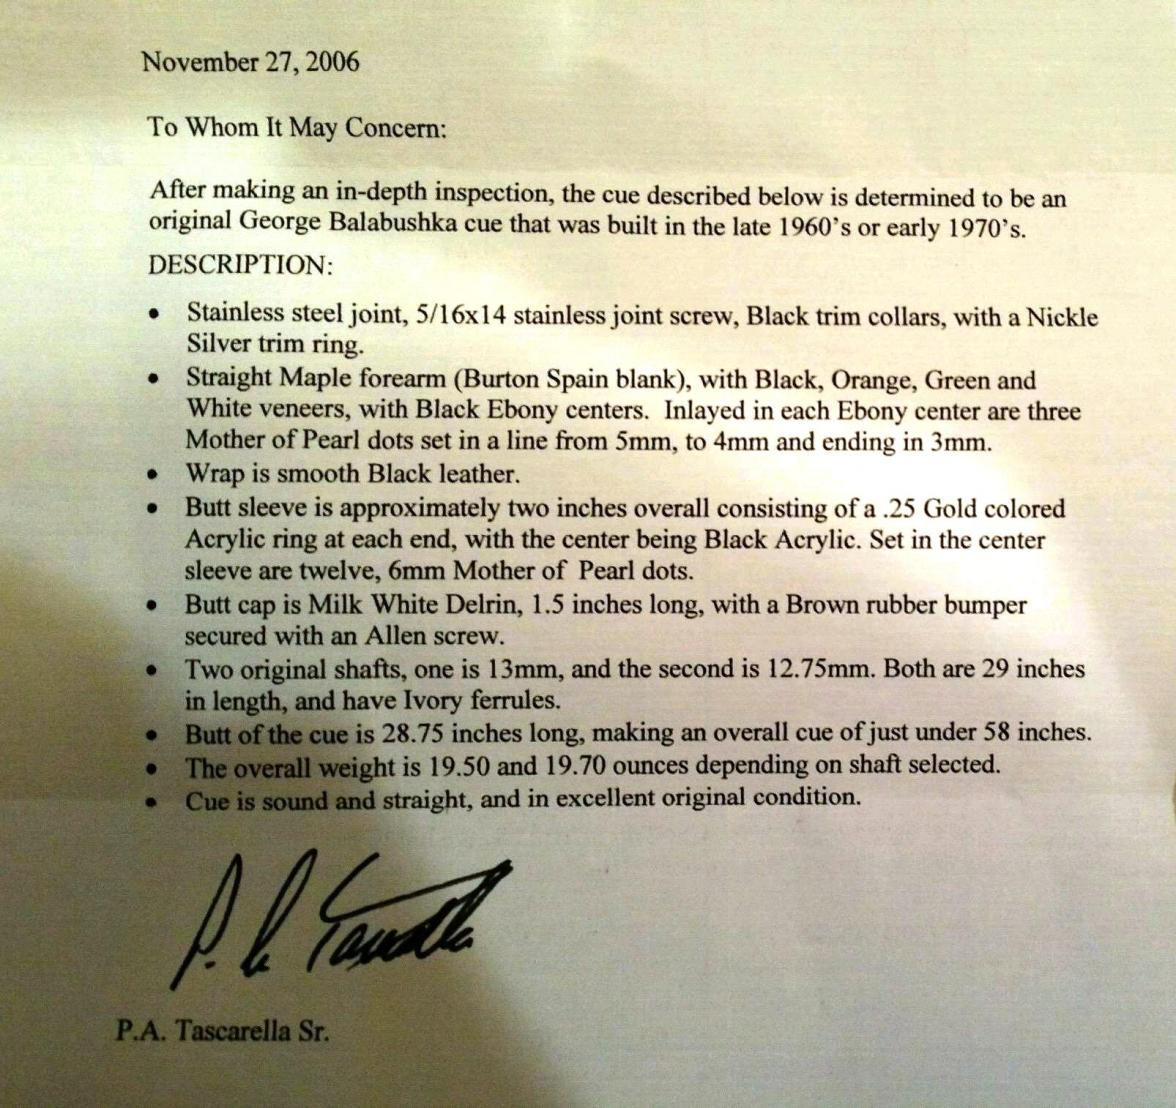 November 27, 2006
To Whom It May Concern:
After making an in-depth inspection, the cue described below is determined to be an
original George Balabushka cue that was built in the late 1960's or early 1970's.
DESCRIPTION:
• Stainless steel joint, 5/16x14 stainless joint screw, Black trim collars, with a Nickle
Silver trim ring.
• Straight Maple forearm (Burton Spain blank), with Black, Orange, Green and
White veneers, with Black Ebony centers. Inlayed in each Ebony center are three
Mother of Pearl dots set in a line from 5mm, to 4mm and ending in 3mm.
• Wrap is smooth Black leather.
• Butt sleeve is approximately two inches overall consisting of a .25 Gold colored
Acrylic ring at each end, with the center being Black Acrylic. Set in the center
sleeve are twelve, 6mm Mother of Pearl dots.
• Butt cap is Milk White Delrin, 1.5 inches long, with a Brown rubber bumper
secured with an Allen screw.
• Two original shafts, one is 13mm, and the second is 12.75mm. Both are 29 inches
in length, and have Ivory ferrules.
• Butt of the cue is 28.75 inches long, making an overall cue of just under 58 inches.
• The overall weight is 19.50 and 19.70 ounces depending on shaft selected.
• Cue is sound and straight, and in excellent original condition.
P.A. Tascarella Sr.